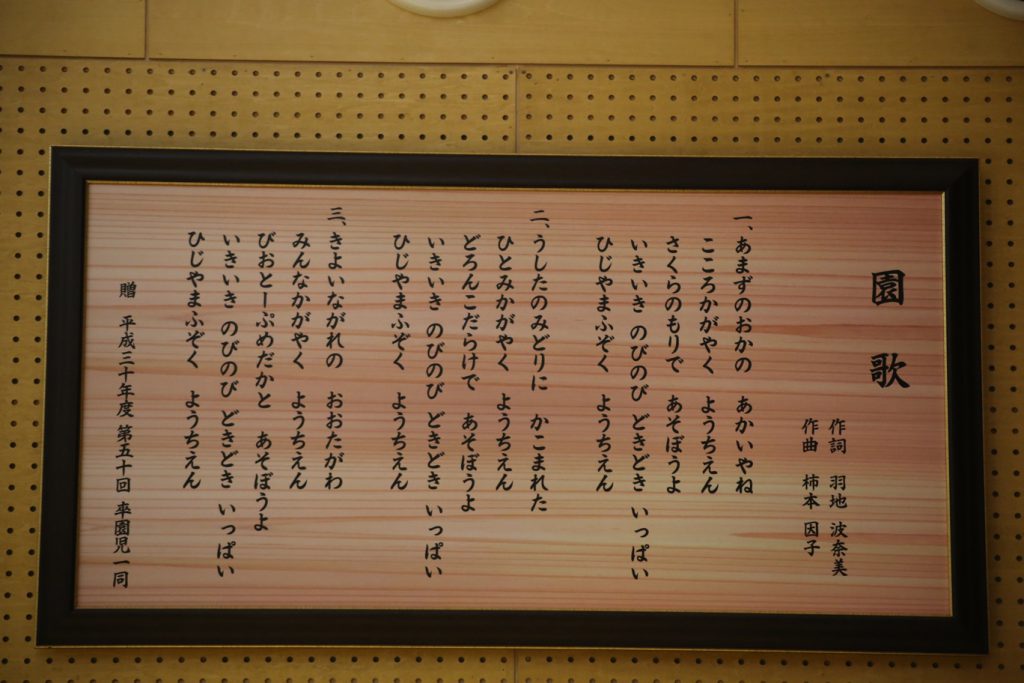 園歌
作詞 羽地 波奈美
作曲 柿本 因子
一、あまずのおかの あかいやね
こころかがやく ようちえん
さくらのもりで あそぼうよ
いきいき のびのび どきどき いっぱい
ひじやまふぞく ようちえん
二、うしたのみどりに かこまれた
ひとみかがやく ようちえん
どろんこだらけで あそぼうよ
いきいき のびのび どきどき いっぱい
ひじやまふぞく ようちえん
三、きよいながれの おおたがわ
みんなかがやく ようちえん
びおとーぷめだかと あそぼうよ
いきいき のびのび どきどき いっぱい
ひじやまふぞく ようちえん
贈 平成三十年度 第五十回 卒園児一同